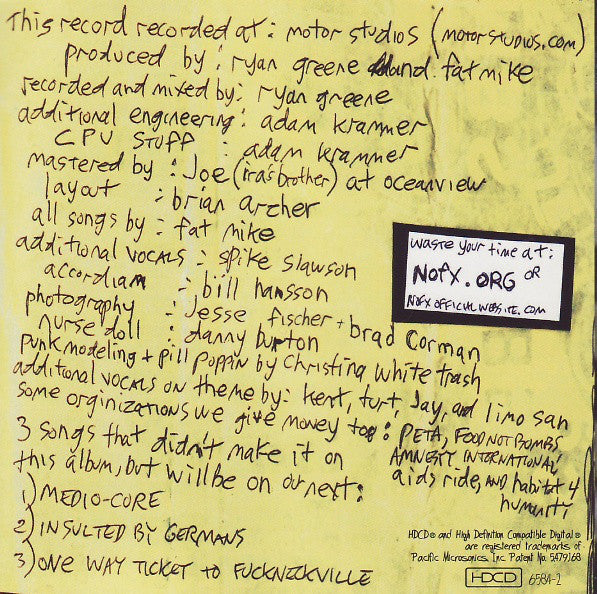 This record recorded at: motor studios (motorstudios.com)
produced by: ryan greene and fat mike
recorded and mixed by: ryan greene
additional engineering: adam krammer
CPU STUFF : adam krammer
mastered by : Joe (ira's brother) at oceanview
layout : brian archer
all songs by: fat mike
additional vocals : spike slawson
accordiam : bill hansson
photography : Jesse fischer + brad Corman
nurse doll : danny burton
punk modeling + pill poppin by Christina white trash
additional vocals on theme by: kent, turt, Jay, and limo san
some orginizations we give money too: PETA, FOOD NOT BOMBS,
AMNESTY INTERNATIONAL,
aids ride, and habitat 4
humanity
3 songs that didn't make it on
this album, but will be on our next:
1) MEDIO-CORE
2) INSULTED BY GERMANS
3) ONE WAY TICKET to FUCKNICKVILLE
waste your time at:
NOFX.ORG OR
NOFXOFFICIALWEBSITE.COM
HDCD® and High Definition Compatible Digital®
are registered trademarks of
Pacific Microsonics, Inc. Patent No. 5,479,168
HDCD 6584-2